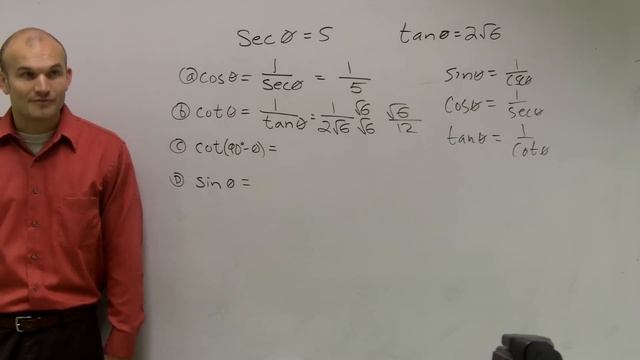 Sec θ = 5 tan θ = 2√6
ⓐ cos θ = 1/sec θ = 1/5
ⓑ cot θ = 1/tan θ = 1/2√6 √6/√6 √6/12
ⓒ cot(90° - θ) =
ⓓ sin θ =
sin θ = 1/csc θ
cos θ = 1/sec θ
tan θ = 1/cot θ